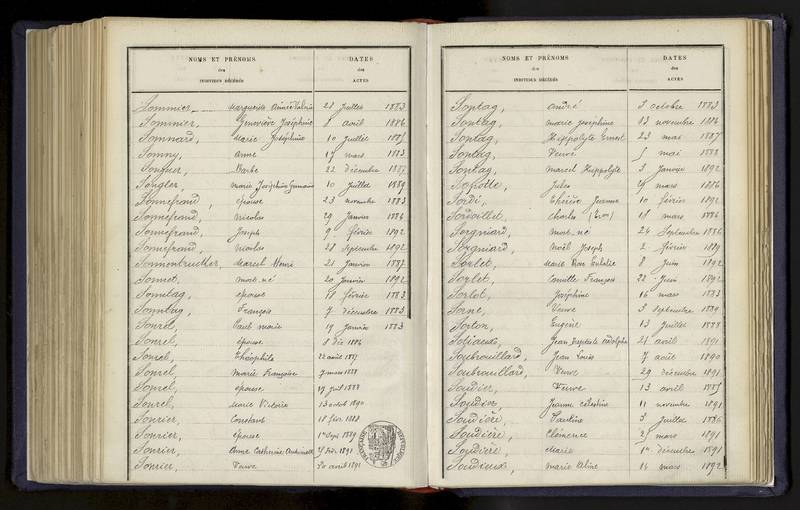 NOMS ET PRÉNOMS
des
INDIVIDUS DÉCÉDÉS
DATES
des
ACTES
Sommier, Marguerite Anne Valérie 28 Juillet 1883
Sommier, Geneviève Joséphine 8 avril 1886
Somnard, Marie Joséphine 10 Juillet 1885
Somny, Anne 17 mars 1883
Barbe 22 décembre 1887
Songler, Marie Joséphine 10 Juillet 1889
Sonnefrand, épouse 23 novembre 1883
Sonnefrand, Nicolas 29 Janvier 1886
Sonnefrand, Joseph 9 février 1892
Sonnefrand, Nicolas 28 Septembre 1892
Marcel Henri 21 Janvier 1887
Sonnet, mort-né 20 Janvier 1892
Sonntag, épouse 18 février 1883
Sonntag, François 7 décembre 1883
Sonrel, Paul Marie 19 Janvier 1883
Sonrel, épouse 8 déc 1886
Sonrel, Théophile 22 août 1887
Sonrel, Marie Françoise 7 mars 1888
Sonrel, épouse 19 1888
Sonrel, Marie Victoire 13 octob 1890
Sonrier, Constant 18 févr. 1888
Sonrier, épouse 1er Sept 1889
Sonrier, Anne Catherine 1891
Sonrier, Veuve 20 avril 1891
NOMS ET PRÉNOMS
des
INDIVIDUS DÉCÉDÉS
DATES
des
ACTES
Sontag, André 3 octobre 1883
Sontag, Marie Joséphine 13 novembre 1886
Sontag, Hippolyte Ernest 23 mai 1887
Sontag, Veuve mai 1888
Sontag, Marcel Hippolyte 3 Janvier 1892
Jules mars 1886
Sordi, Thérèse Jeanne 10 février 1892
Sordoillet, Charles (Léon) 18 mars 1886
Sorgniard, mort-né 24 Septembre 1886
Sorgniard, Noël Joseph 2 février 1889
Sorlet, Marie Rose Eulalie 8 Juin 1892
Sorlet, Camille François 22 Juin 1892
Sorlot, Joséphine 16 mars 1883
Sorne, Veuve 3 Septembre 1889
Sorton, Eugène 13 Juillet 1888
Sotiaux, Jean Baptiste Adolphe 21 avril 1891
Soubrouillard, Jean Louis 7 août 1890
Soubrouillard, Veuve 29 décembre 1891
Soudier, Veuve 13 avril 1885
Soudier, Jeanne Célestine 11 novembre 1891
Soudière, Pauline 3 Juillet 1886
Soudière, Clémence mars 1891
Soudière, Marie 1er décembre 1891
Soudieux, Marie Céline 14 mars 1892